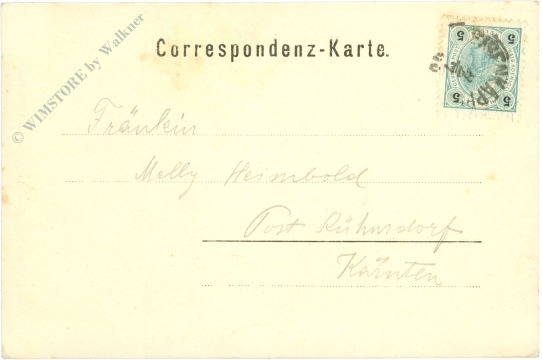 Correspondenz-Karte.
5 5
EISENKAPPEL
5 5
© WIMSTORE by Walkner
Fräulein
Melly Heimbold
Post Kühnsdorf
Kärnten